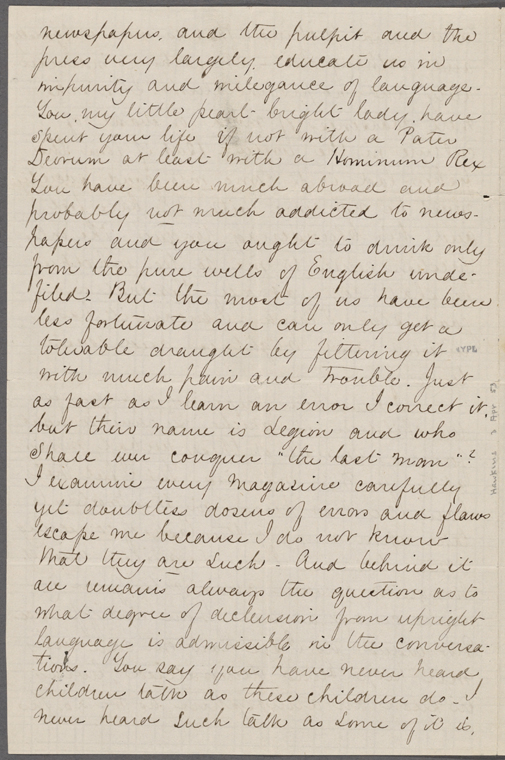 newspapers, and the pulpit and the
press very largely, educate us in
impurity and inelegance of language.
You, my little pearl-bright lady, have
spent your life if not with a Pater
Deorum at least with a Hominum Rex
You have been much abroad and
probably not much addicted to news-
papers and you ought to drink only
from the pure wells of English unde-
filed. But the most of us have been
less fortunate and can only get a
tolerable draught by filtering it
with much pain and trouble. Just
as fast as I learn an error I correct it,
but their name is Legion and who
shall ever conquer "the last man"?
I examine every magazine carefully
yet doubtless dozens of errors and flaws
escape me because I do not know
that they are such - And behind it
all remains always the question as to
what degree of declension from upright
language is admissible in the conversa-
tions. You say you have never heard
children talk as these children do - I
never heard such talk as some of it is,
NYPL
Hawkins 3 Apr 53